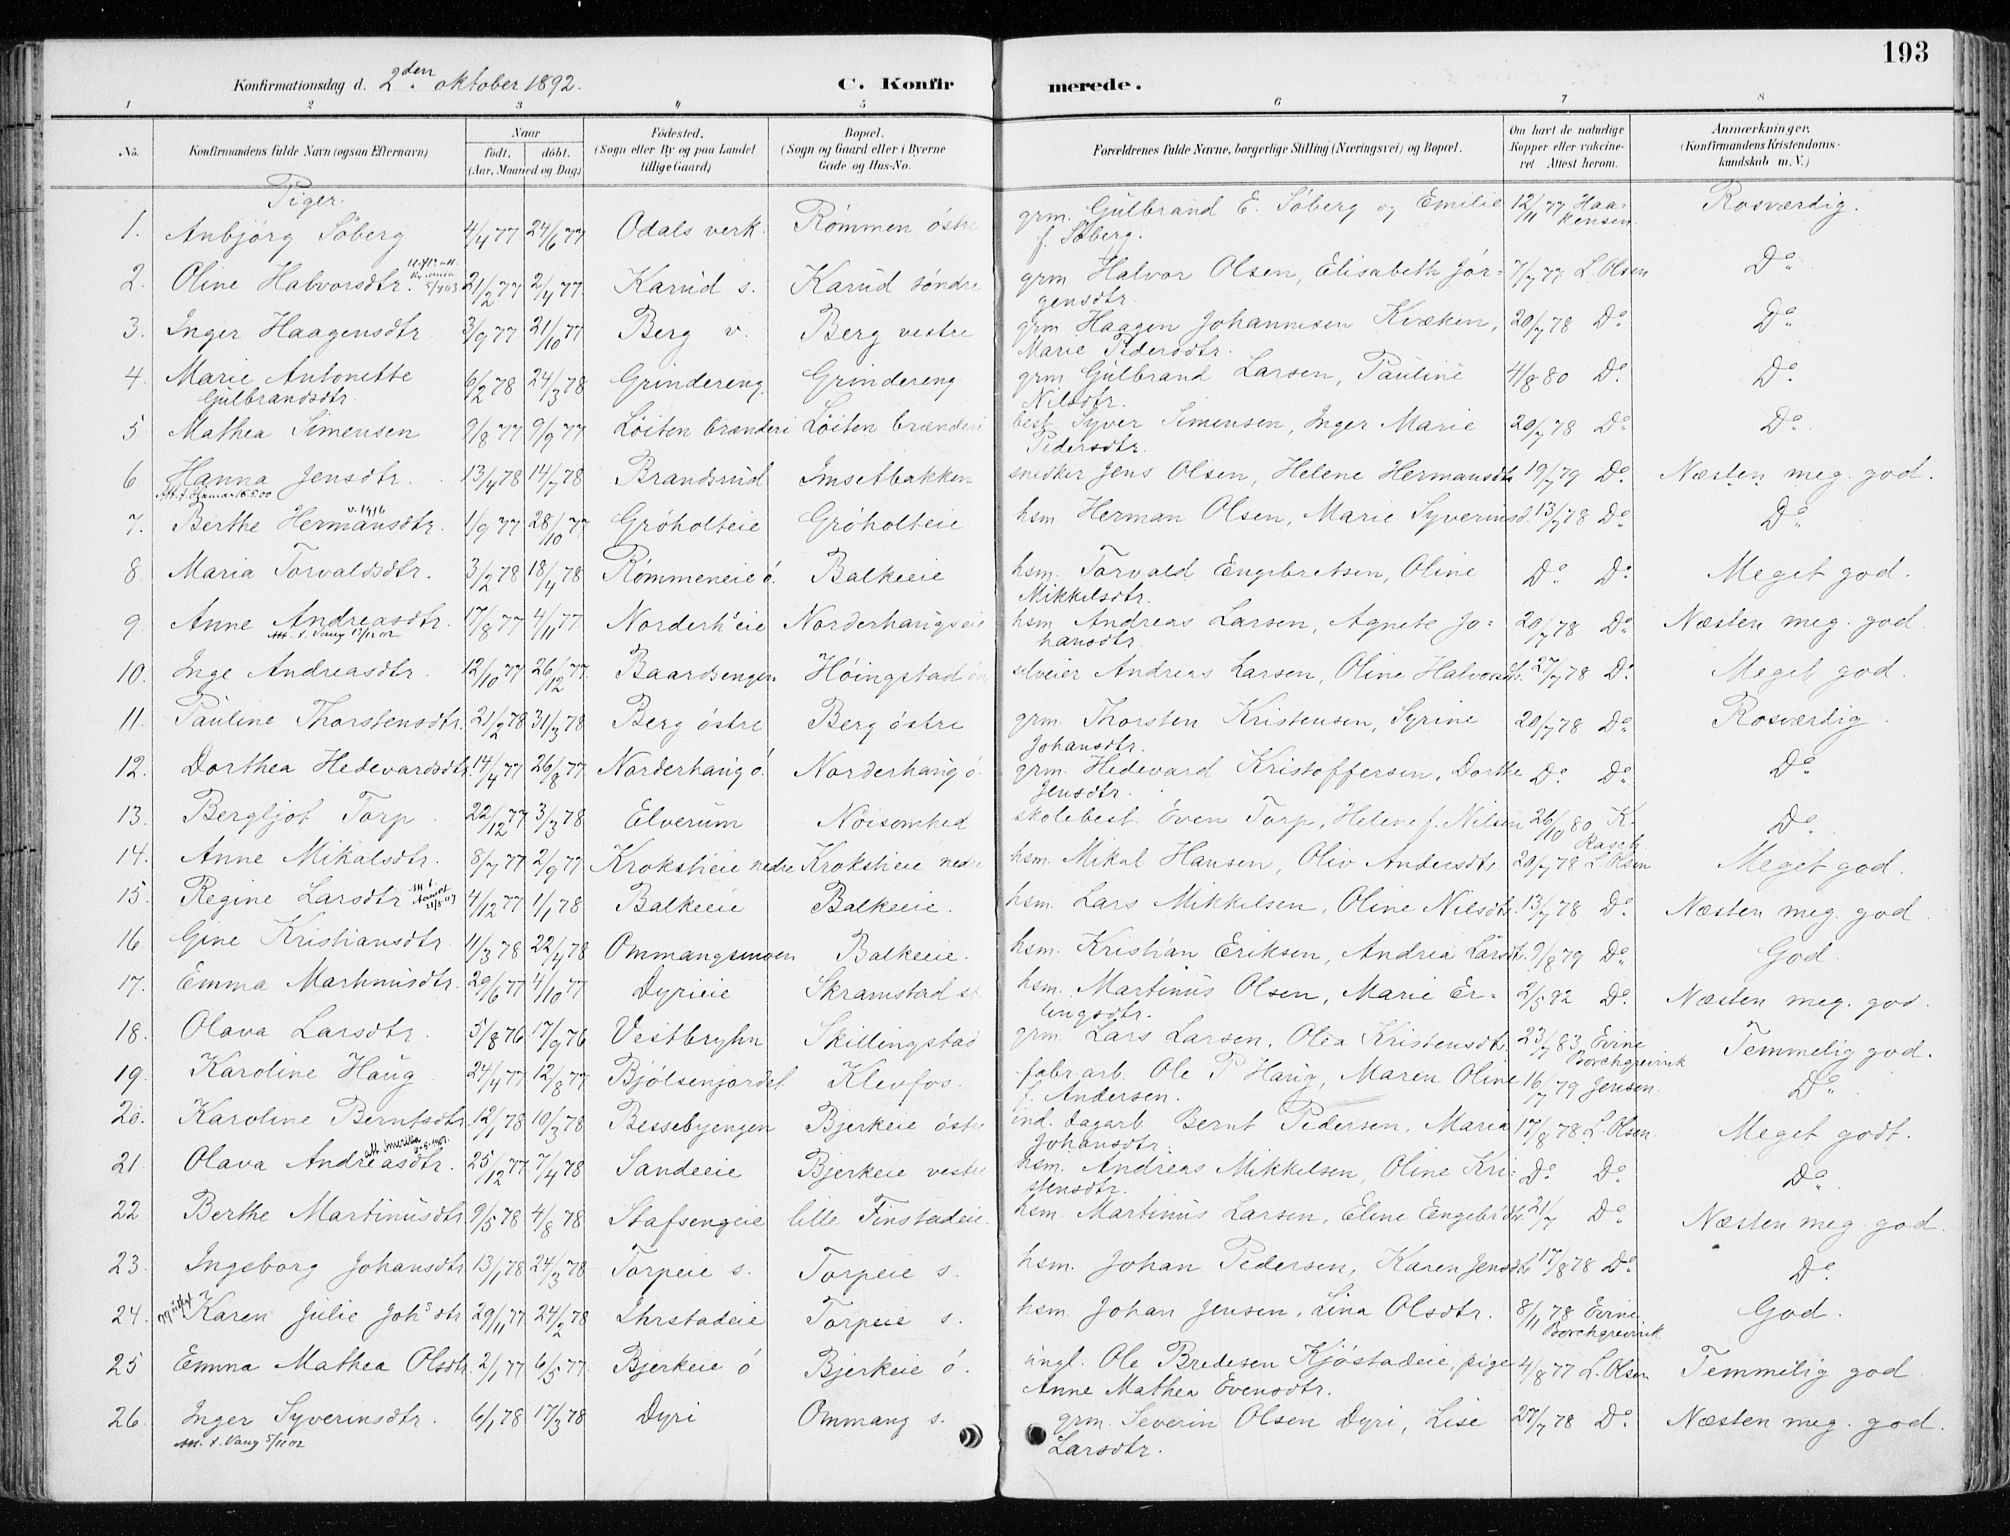 193
Konfirmationsdag d. 2den oktober 1892. C. Konfir merede.
1 2 3 4 5 6 7 8
No. Konfirmandens fulde Navn (ogsaa Efternavn) Naar født. døbt. (Aar, Maaned og Dag) Fødested. (Sogn eller By og paa Landet tillige Gaard) Bopæl. (Sogn og Gaard eller i Byerne Gade og Hus-No. Forældrenes fulde Navne, borgerlige Stilling (Næringsvei) og Bopæl. Om havt de naturlige Kopper eller vakcineret Attest herom. Anmærkninger. (Konfirmandens Kristendomskundskab m. V.)
Piger.
1. Anbjørg Søberg 4/4 77 24/6 77 Odals verk. Rømmen østre grm. Gulbrand E. Søberg og Emilie f. Søberg. 12/11 77 Haakensen Rosværdig.
2. Oline Halvorsdtr. 21/2 77 2/4 77 Karud s. Karud søndre grm Halvor Olsen, Elisabeth Jørgensdtr. 7/7 77 L. Olsen Do
3. Inger Haagensdtr. 3/9 77 21/10 77 Berg v. Berg vestre grm Haagen Johannesen Kvæken, Marie Pedersdtr. 20/7 78 Do Do
4. Marie Antonette Gulbrandsdtr. 6/2 78 24/3 78 Grindereng Grindereng grm. Gulbrand Larsen, Pauline Nilsdtr. 4/8 80 Do. Do
5 Mathea Simensen 9/8 77 9/9 77 Løiten brænderi Løiten brænderi best. Syver Simensen, Inger Marie Pedersdtr. 20/7 78 Do Do
6 Hanna Jensdtr. 13/4 78 14/7 78 Brandsrud Imsetbakken snedker Jens Olsen, Helene Hermansdtr 19/7 79 Do. Næsten meg. god.
7. Berthe Hermansdtr. 1/9 77 28/10 77 Grøholteie Grøholteie hsm. Herman Olsen, Marie Syverinsd. 13/7 78 Do Do
8 Maria Torvaldsdtr. 3/2 78 18/4 78 Rømmeneie ø. Balkeeie hsm. Torvald Engebretsen, Oline Mikkelsdtr. Do Do Meget god.
9. Anne Andreasdtr. 17/8 77 4/11 77 Norderh.eie Norderhaugseie hsm Andreas Larsen, Agnete Johansdtr. 20/7 78 Do Næsten meg. god.
10. Inge Andreasdtr. 12/10 77 26/12 77. Baardsengen Høingstad selveier Andreas Larsen, Oline Halvorsdtr. 27/7 78 Do. Meget god.
11. Pauline Thorstensdtr. 21/2 78 31/3 78 Berg østre Berg østre grm. Thorsten Kristensen, Syrine Johansdtr. 20/7 78 Do Rosværdig.
12. Dorthea Hedevardsdtr. 14/4 77 26/8 77 Norderhaug ø. Norderhaug ø. grm. Hedevard Kristoffersen, Dorthe Jensdtr. Do Do Do
13. Bergljot Torp. 22/12 77 3/3 78 Elverum Nøisomhed skolebest. Even Torp, Helene f. Nilsen 26/10 80 K. Rasch Do
14. Anne Mikalsdtr. 8/7 77 2/9 77 Kroksti eie nedre Kroksti eie nedre hsm. Mikal Hansen, Oliv Andersdtr. 20/7 78 L. Olsen Meget god.
15. Regine Larsdtr 4/12 77 1/1 78 Balkeeie Balkeeie. hsm. Lars Mikkelsen, Oline Nilsdtr. 13/7 78 Do. Næsten meg. god.
16 Gine Kristiansdtr. 11/3 78 22/4 78 Ommangsmoen Balkeeie. hsm. Kristian Eriksen, Andrea Larsdtr. 9/8 79 Do God.
17. Emma Martinusdtr. 29/6 77 4/10 77 Dyrieie Skramstad hsm. Martinus Olsen, Marie Erlingsdtr. 2/5 92 Do. Næsten meg. god.
18. Olava Larsdtr. 5/8 76 17/9 76 Vestbryhn Skillingstad grm. Lars Larsen, Olea Kristensdtr 23/7 83 Evine Borchgrevink Temmelig god.
19. Karoline Haug 24/4 77 12/8 77 Bjølsenjordet Klevfos. fabr. arb. Ole P Haug, Maren Oline f. Andersen. 16/7 79 Jensen. Do
20. Karoline Berntsdtr. 12/1 78 10/3 78 Bessebyengen Bjerkeie østre ind. dagarb Bernt Pedersen, Maria Johansdtr. 17/8 78 L. Olsen. Meget godt.
21 Olava Andreasdtr. 25/12 77 7/4 78 Sandeeie Bjerkeie vestre hsm. Andreas Mikkelsen, Oline Kristensdtr. Do Do Do
22 Berthe Martinusdtr 9/5 78 4/8 78 Stafsengeie lille Finstadeie. hsm. Martinus Larsen, Eline Engebrdtr. 21/7 Do Næsten meg. god.
23. Ingeborg Johansdtr. 13/1 78 24/3 78 Torpeie s. Torpeie s. hsm. Johan Pedersen, Karen Jensdtr. 17/8 78 Do. Do.
24. Karen Julie Johsdtr 29/11 77 24/2 78 Ihrstadeie Torpeie s. hsm. Johan Jensen, Lina Olsdtr. 8/11 78 Evine Borchgrevink God.
25 Emma Mathea Olsdtr. 2/1 77 6/5 77 Bjerkeie ø Bjerkeie ø. ungl. Ole Bredesen Kjøstadeie, pige Anne Mathea Evensdtr. 4/8 77 L. Olsen Temmelig god
26. Inger Syverinsdtr. Att. t. Vang 5/11 02 6/1 78 17/3 78 Dyri Ommang s. grm. Severin Olsen Dyri, Lise Larsdtr. 27/7 78 Do. Næsten meg. god.